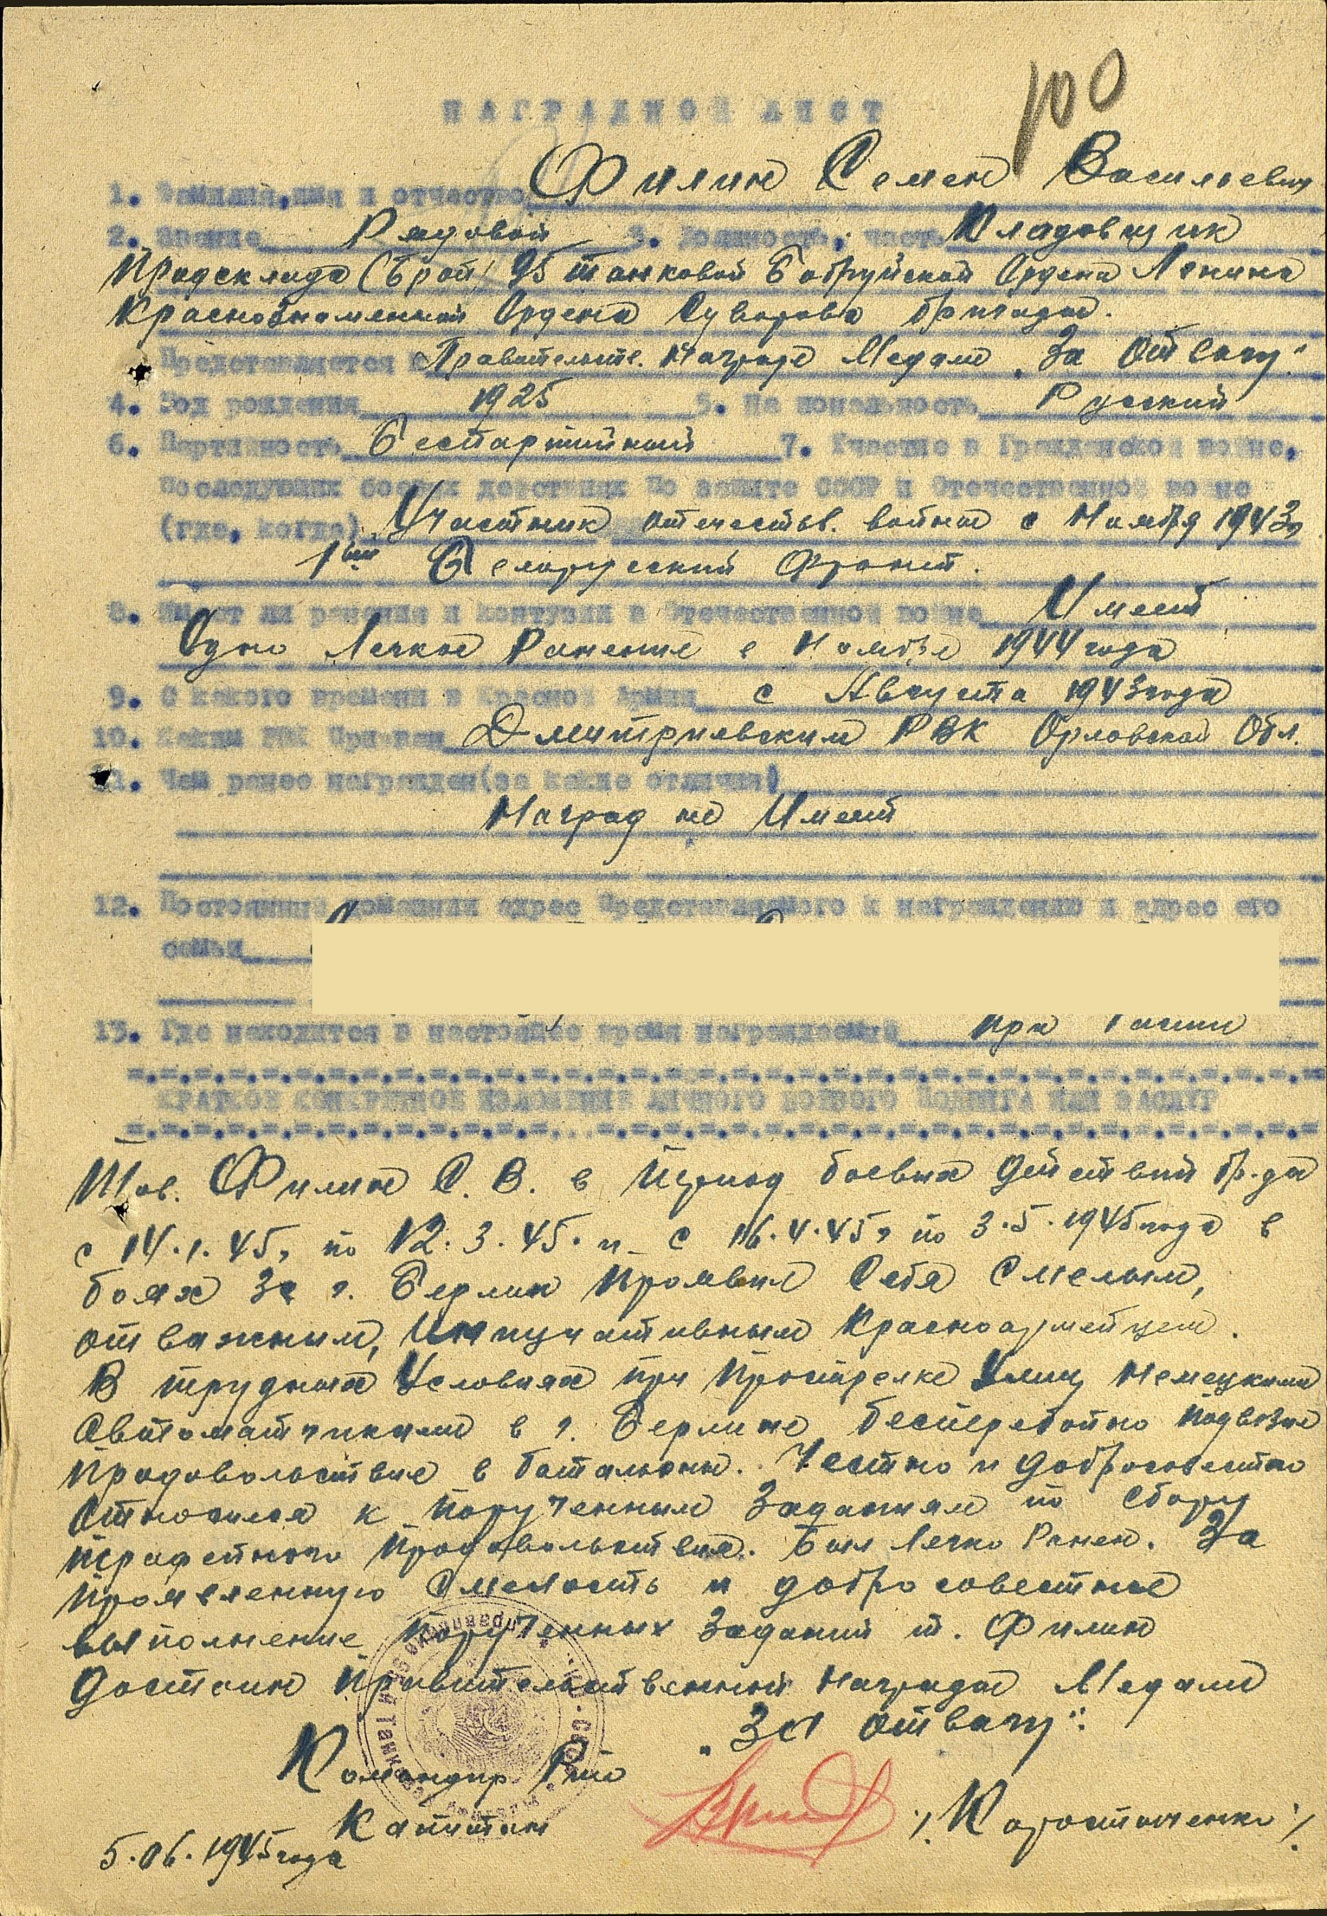 100
НАГРАДНОЙ ЛИСТ
1. Фамилия, имя и отчество Филин Семен Васильевич
2. Звание Рядовой 3. Должность, часть Кладовщик
Продсклада 95 танковой Бобруйской Ордена Ленина
Краснознаменной Ордена Суворова бригады.
Представляется к Правительств. Награде Медали „За Отвагу"
4. Год рождения 1925 5. Национальность Русский
6. Партийность Беспартийный 7. Участие в Гражданской войне,
последующих боевых действиях по защите СССР и Отечественной войне
(где, когда) Участник отечеств. войны с Ноября 1943г
1ый Белорусский Фронт.
8. Имеет ли ранения и контузии в Отечественной войне Имеет
Одно Легкое Ранение в Ноябре 1944 года
9. С какого времени в Красной Армии с Августа 1943 года
10. Каким РВК призван Дмитриевским РВК Орловской Обл.
11. Чем ранее награжден (за какие отличия)
Наград не Имеет
12. Постоянный домашний адрес представляемого к награждению и адрес его
семьи
13. Где находится в настоящее время награждаемый При Части
КРАТКОЕ КОНКРЕТНОЕ ИЗЛОЖЕНИЕ ЛИЧНОГО БОЕВОГО ПОДВИГА ИЛИ ЗАСЛУГ
Тов. Филин С. В. в Период боевых действий бр-ды
с 14.1.45г по 12.3.45. и с 16.4.45г по 3.5.1945 года в
боях за г. Берлин Проявил Себя Смелым,
отважным, красноармейцем.
В трудных Условиях при Простреле Улиц Немецкими
Автоматчиками в г. Берлине бесперебойно подвозил
Продовольствие в батальоны. Честно и добросовестно
относился к порученным Заданиям по сбору
продовольствия. Был Легко Ранен. За
проявленную Смелость и добросовестное
выполнение порученных Заданий т. Филин
достоин Правительственной Награды Медали
„За отвагу".
Командир
Капитан /Коростыченко/.
5.06.1945 года